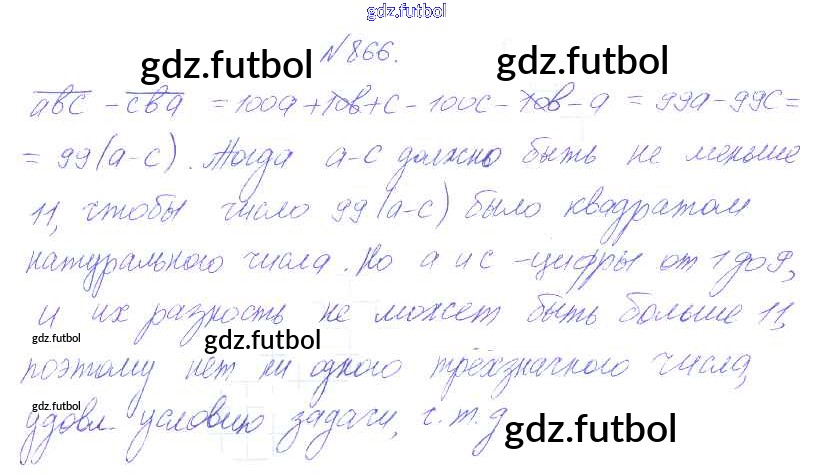 gdz.futbol
№866.
gdz.futbol gdz.futbol
abc - cba = 100a+10b+c-100c-10b-a = 99a-99c=
= 99(a-c). Тогда a-c должно быть не меньше
11, чтобы число 99(a-c) было квадратом
натурального числа. Но a и c - цифры от 1 до 9,
и их разность не может быть больше 11,
gdz.futbol gdz.futbol
поэтому нет ни одного трёхзначного числа,
gdz.futbol
удовл. условию задачи, ч.т.д
gdz.futbol